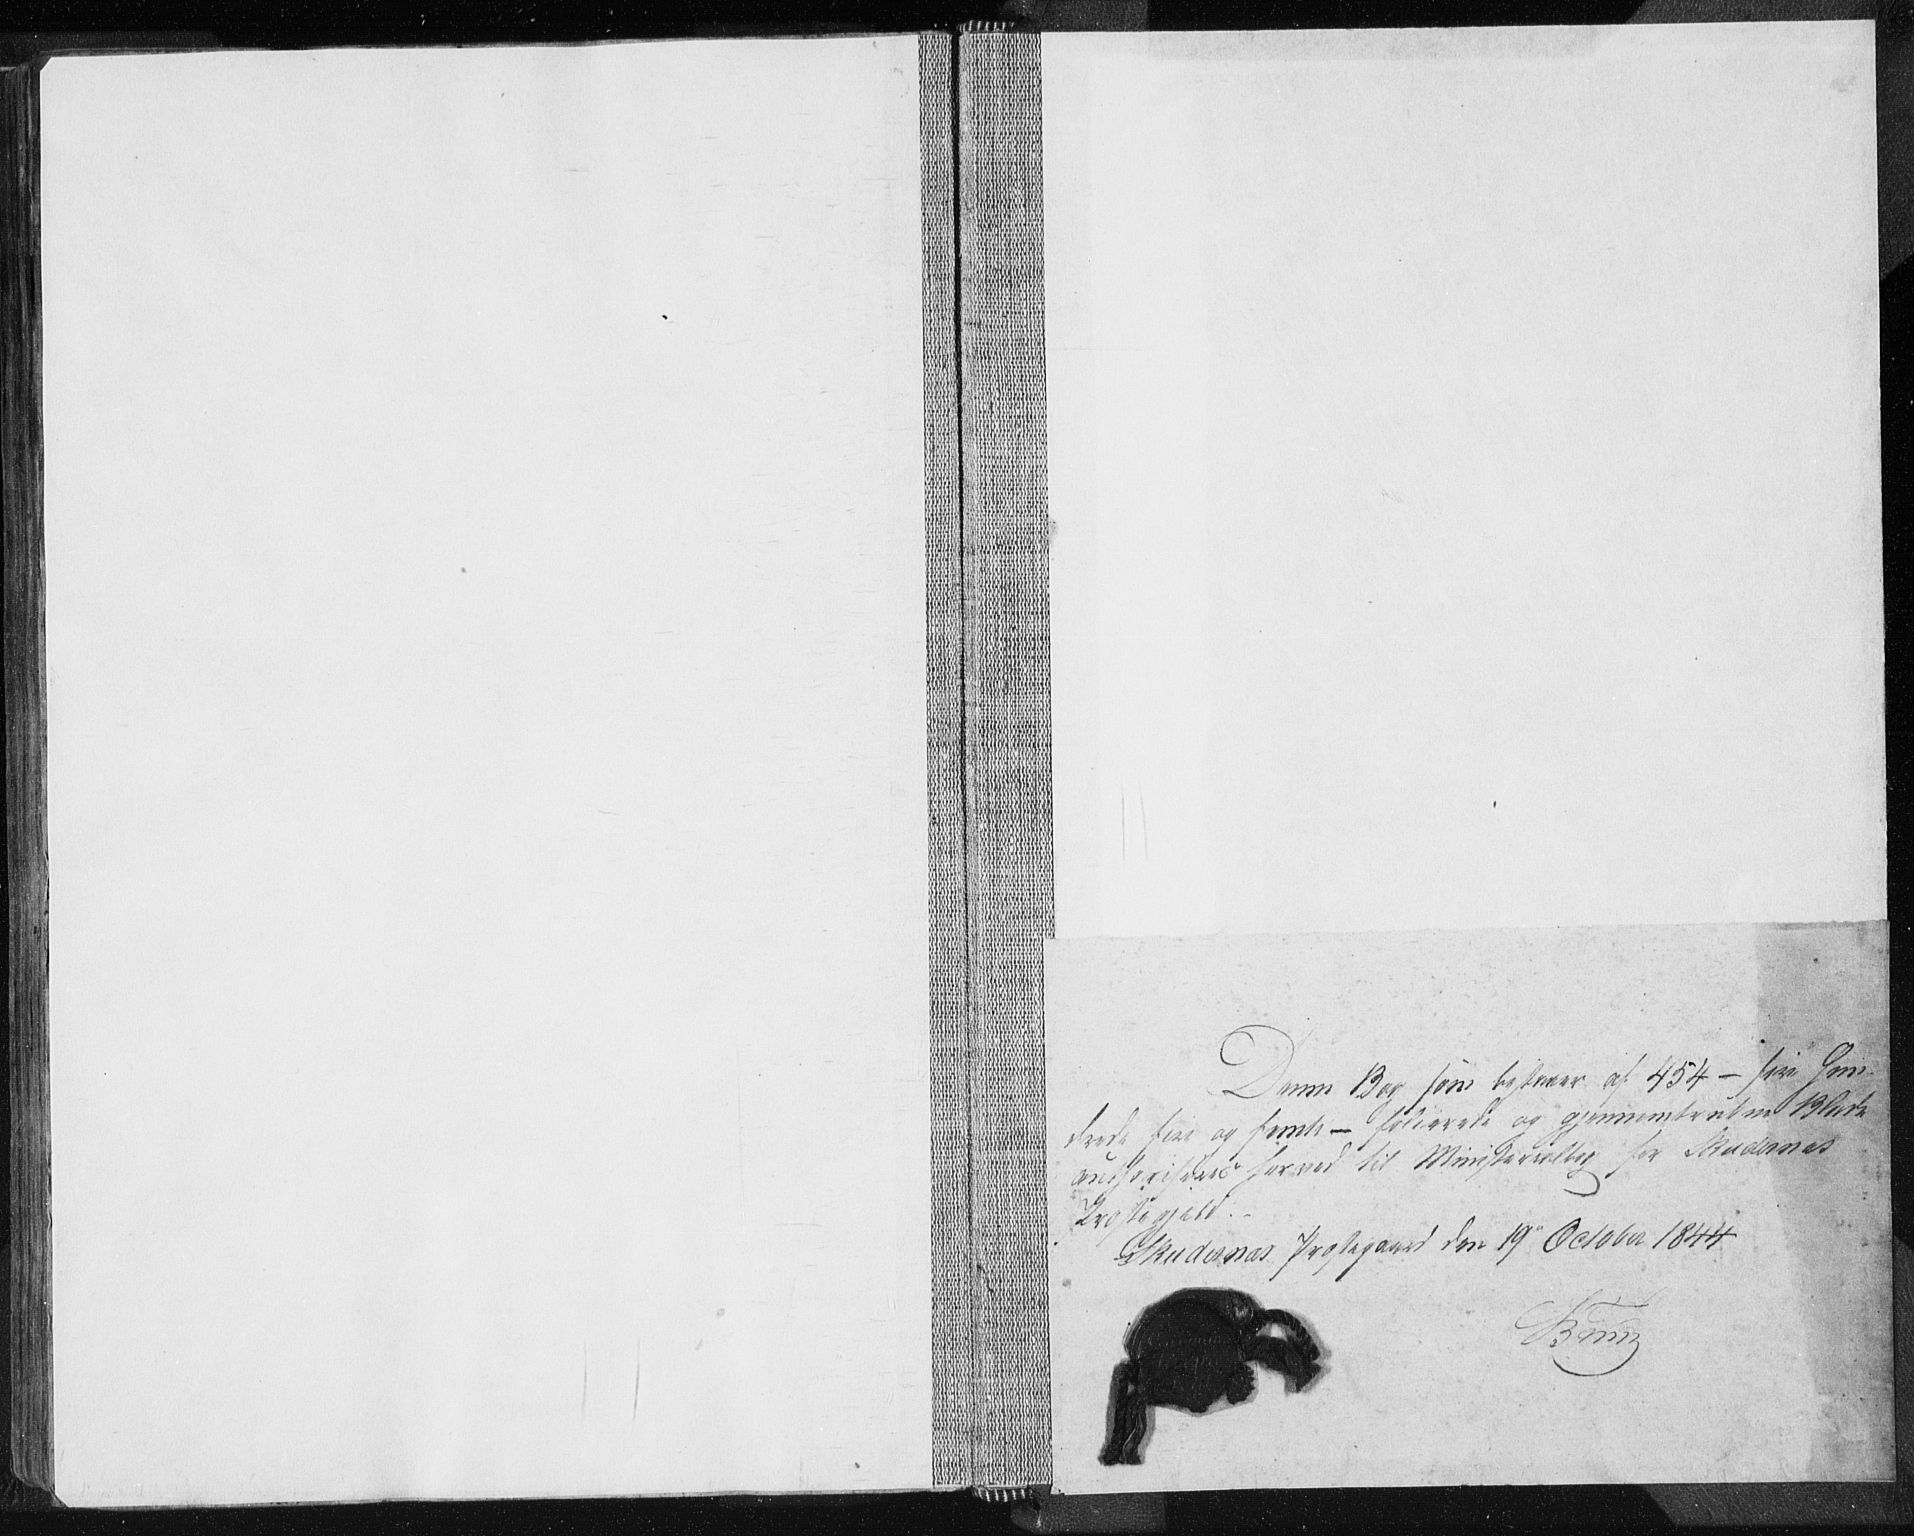 Denne Bog som bestaaer af 454 – fire Hun-
drede fire og femti – folierede og gjennemtrukne Blade
authoriseres herved til Ministerialbog for Skudesnæs
Præstegjeld. –
Skudesnæs Præstegaard den 19 October 1844